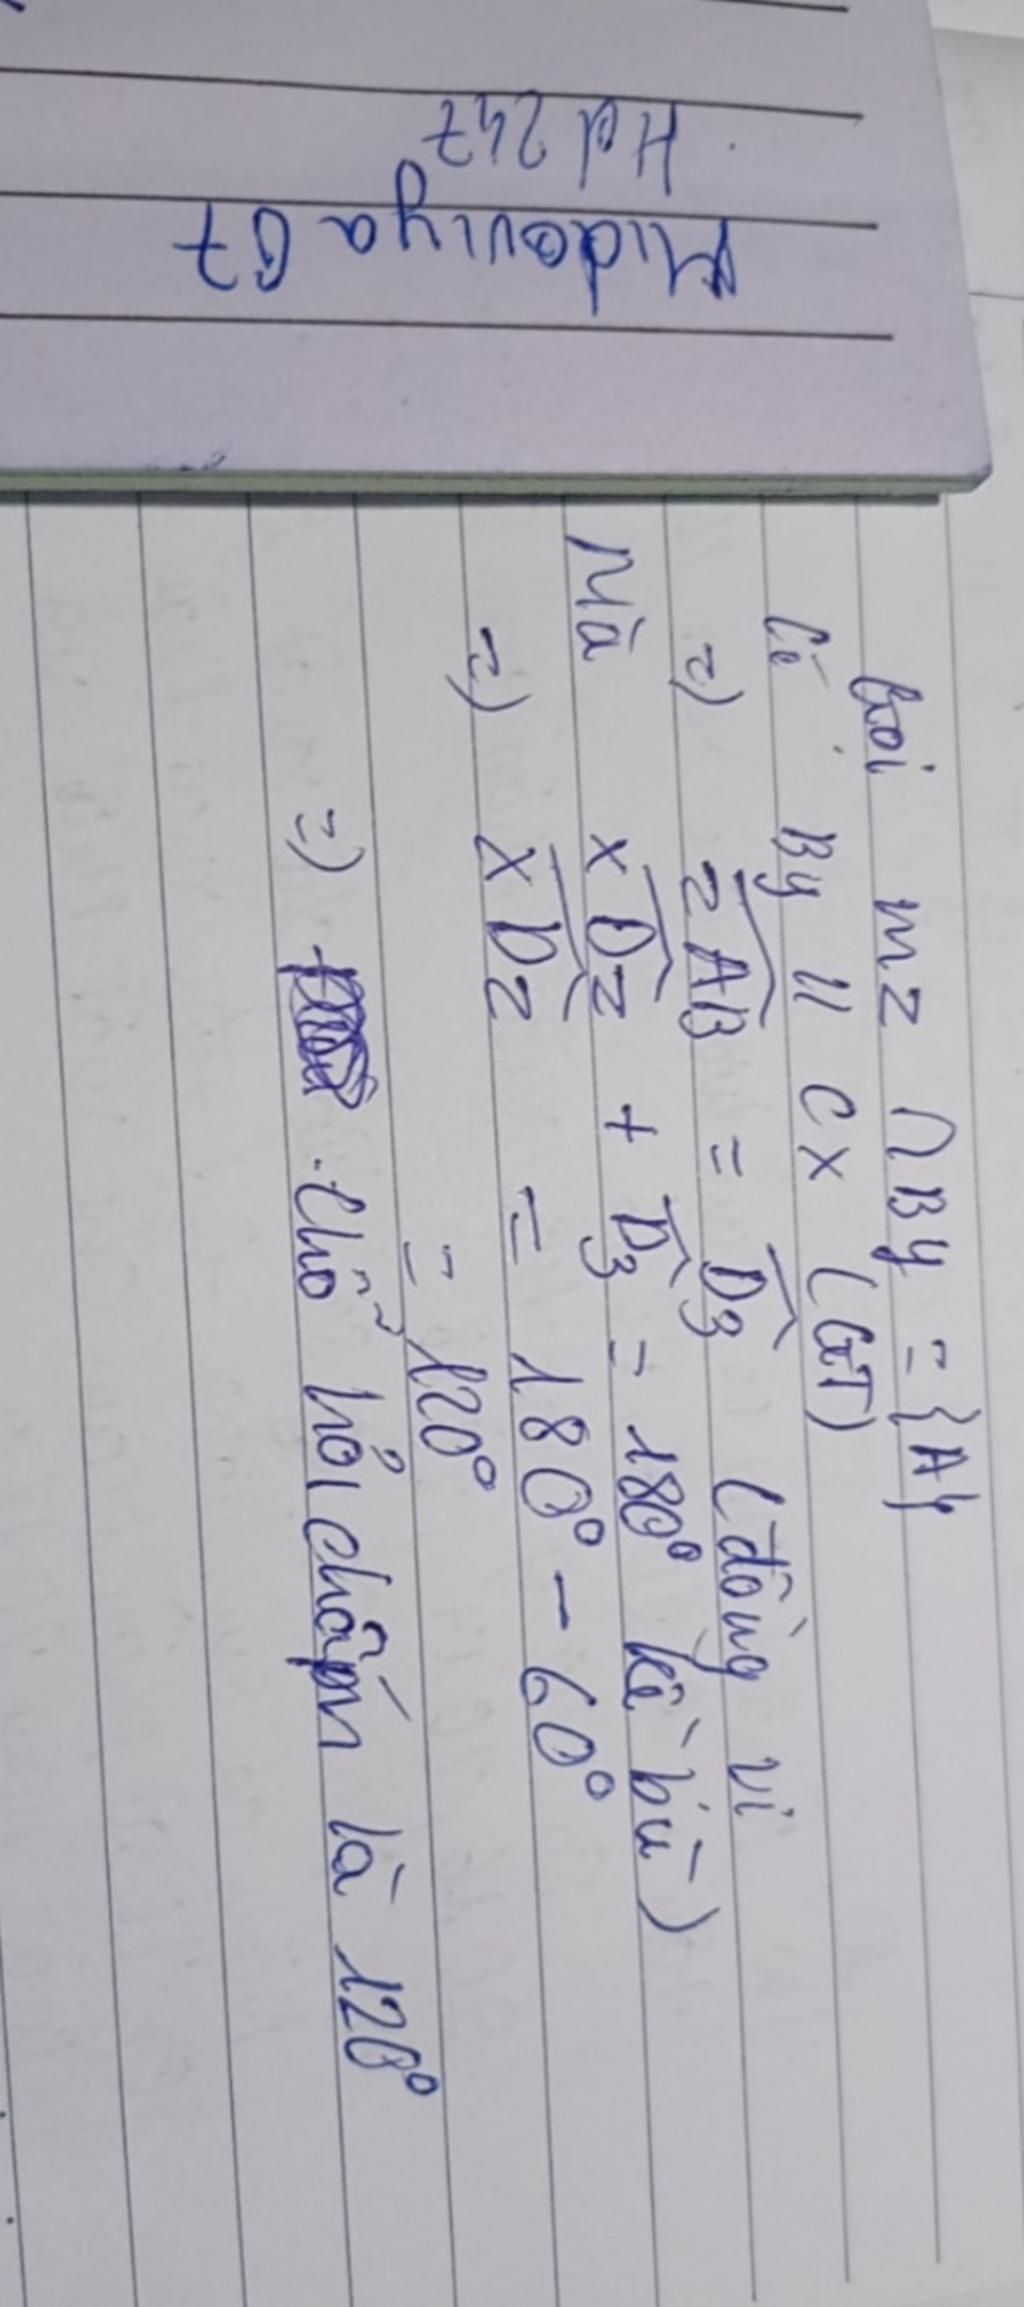 Hd 247
Midoviya 07
Gọi mz ∩ By = {A}
Có By // Cx (GT)
=) zAB = D3 (đồng vị
Mà xDz + D3 = 180° kề bù)
=) xDz = 180° - 60°
= 120°
=) Chỗ hỏi chấm là 120°